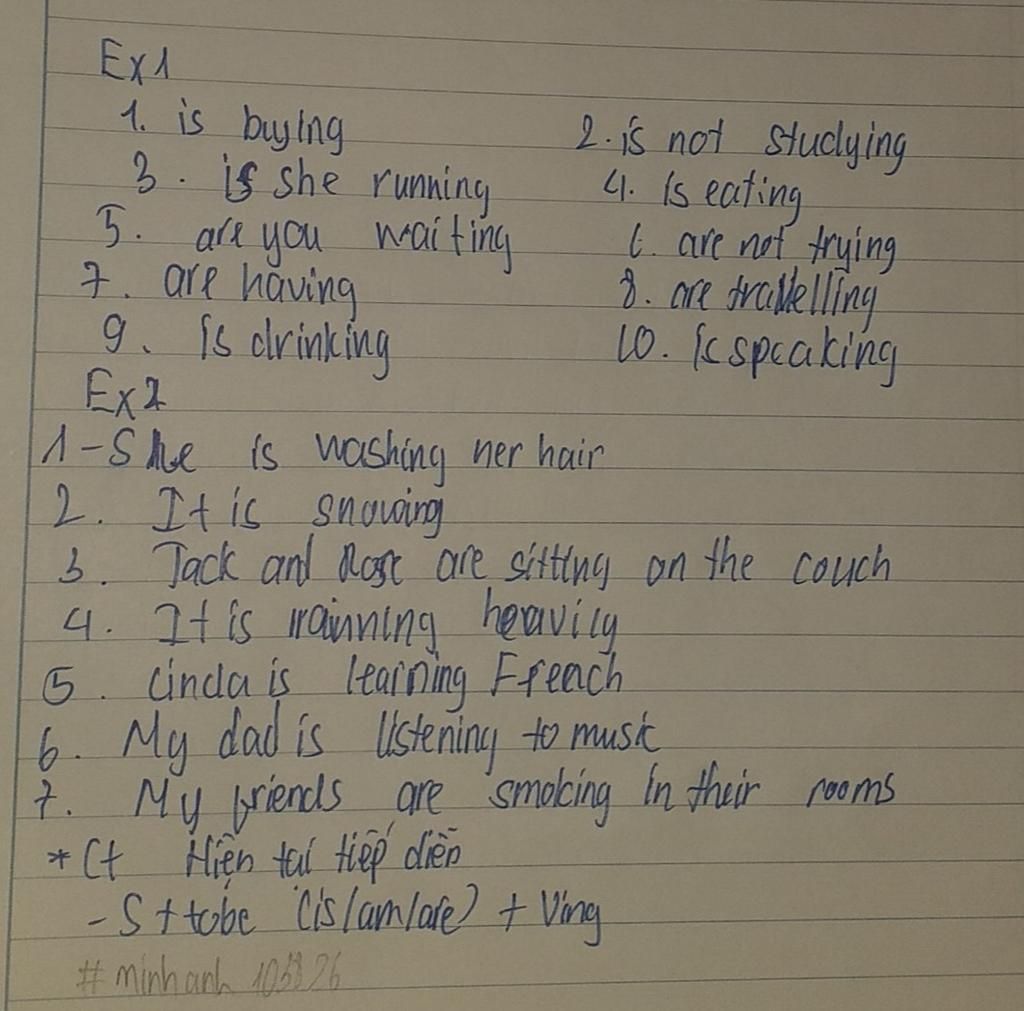 Ex1
1. is buying 2. is not studying
3. is she running 4. is eating
5. are you waiting 6. are not trying
7. are having 8. are travelling
9. is drinking 10. is speaking
Ex2
1 - She is washing her hair
2. It is snowing
3. Jack and Rose are sitting on the couch
4. It is rainning heavily
5. Linda is learning French
6. My dad is listening to music
7. My friends are smoking in their rooms
* Ct Hiện tại tiếp diễn
- S + tobe (is/am/are) + Ving
# minhanh